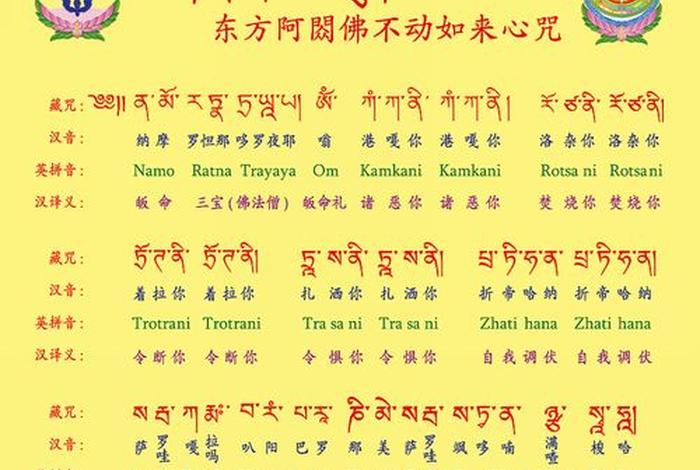 东方阿閦佛不动如来心咒
藏咒： ༄༅།། ན་མོ་ རཏྣ་ ཏྲ་ཡཱ་ཡ། ཨོཾ་ ཀཾ་ཀ་ནི་ ཀཾ་ཀ་ནི། རོ་ཙ་ནི་ རོ་ཙ་ནི།
汉音： 纳摩 罗怛那 哆罗夜耶 嗡 港嘎你 港嘎你 洛杂你 洛杂你
英拼音： Namo Ratna Trayaya Om Kamkani Kamkani Rotsa ni Rotsani
汉译义： 皈命 三宝(佛法僧) 皈命礼 诸恶你 诸恶你 焚烧你 焚烧你
藏咒： ཏྲོ་ཊ་ནི་ ཏྲོ་ཊ་ནི། ཏྲཱ་ས་ནི་ ཏྲཱ་ས་ནི། པྲ་ཏི་ཧ་ན་ པྲ་ཏི་ཧ་ན།
汉音： 着拉你 着拉你 扎洒你 扎洒你 折帝哈纳 折帝哈纳
英拼音： Trotrani Trotrani Tra sa ni Tra sa ni Zhati hana Zhati hana
汉译义： 令断你 令断你 令惧你 令惧你 自我调伏 自我调伏
藏咒： ས་རྦ་ ཀ་རྨཾ་ པ་རཾ་ པ་ར་ ཎི་མེ་ ས་རྦ་ ས་ཏྭ་ན་ ཉྩ་ སྭཱ་ཧཱ།
汉音： 萨罗哇 嘎拉吗 叭阳 巴罗 那美 萨罗哇 飒哆喃 满喳 梭哈